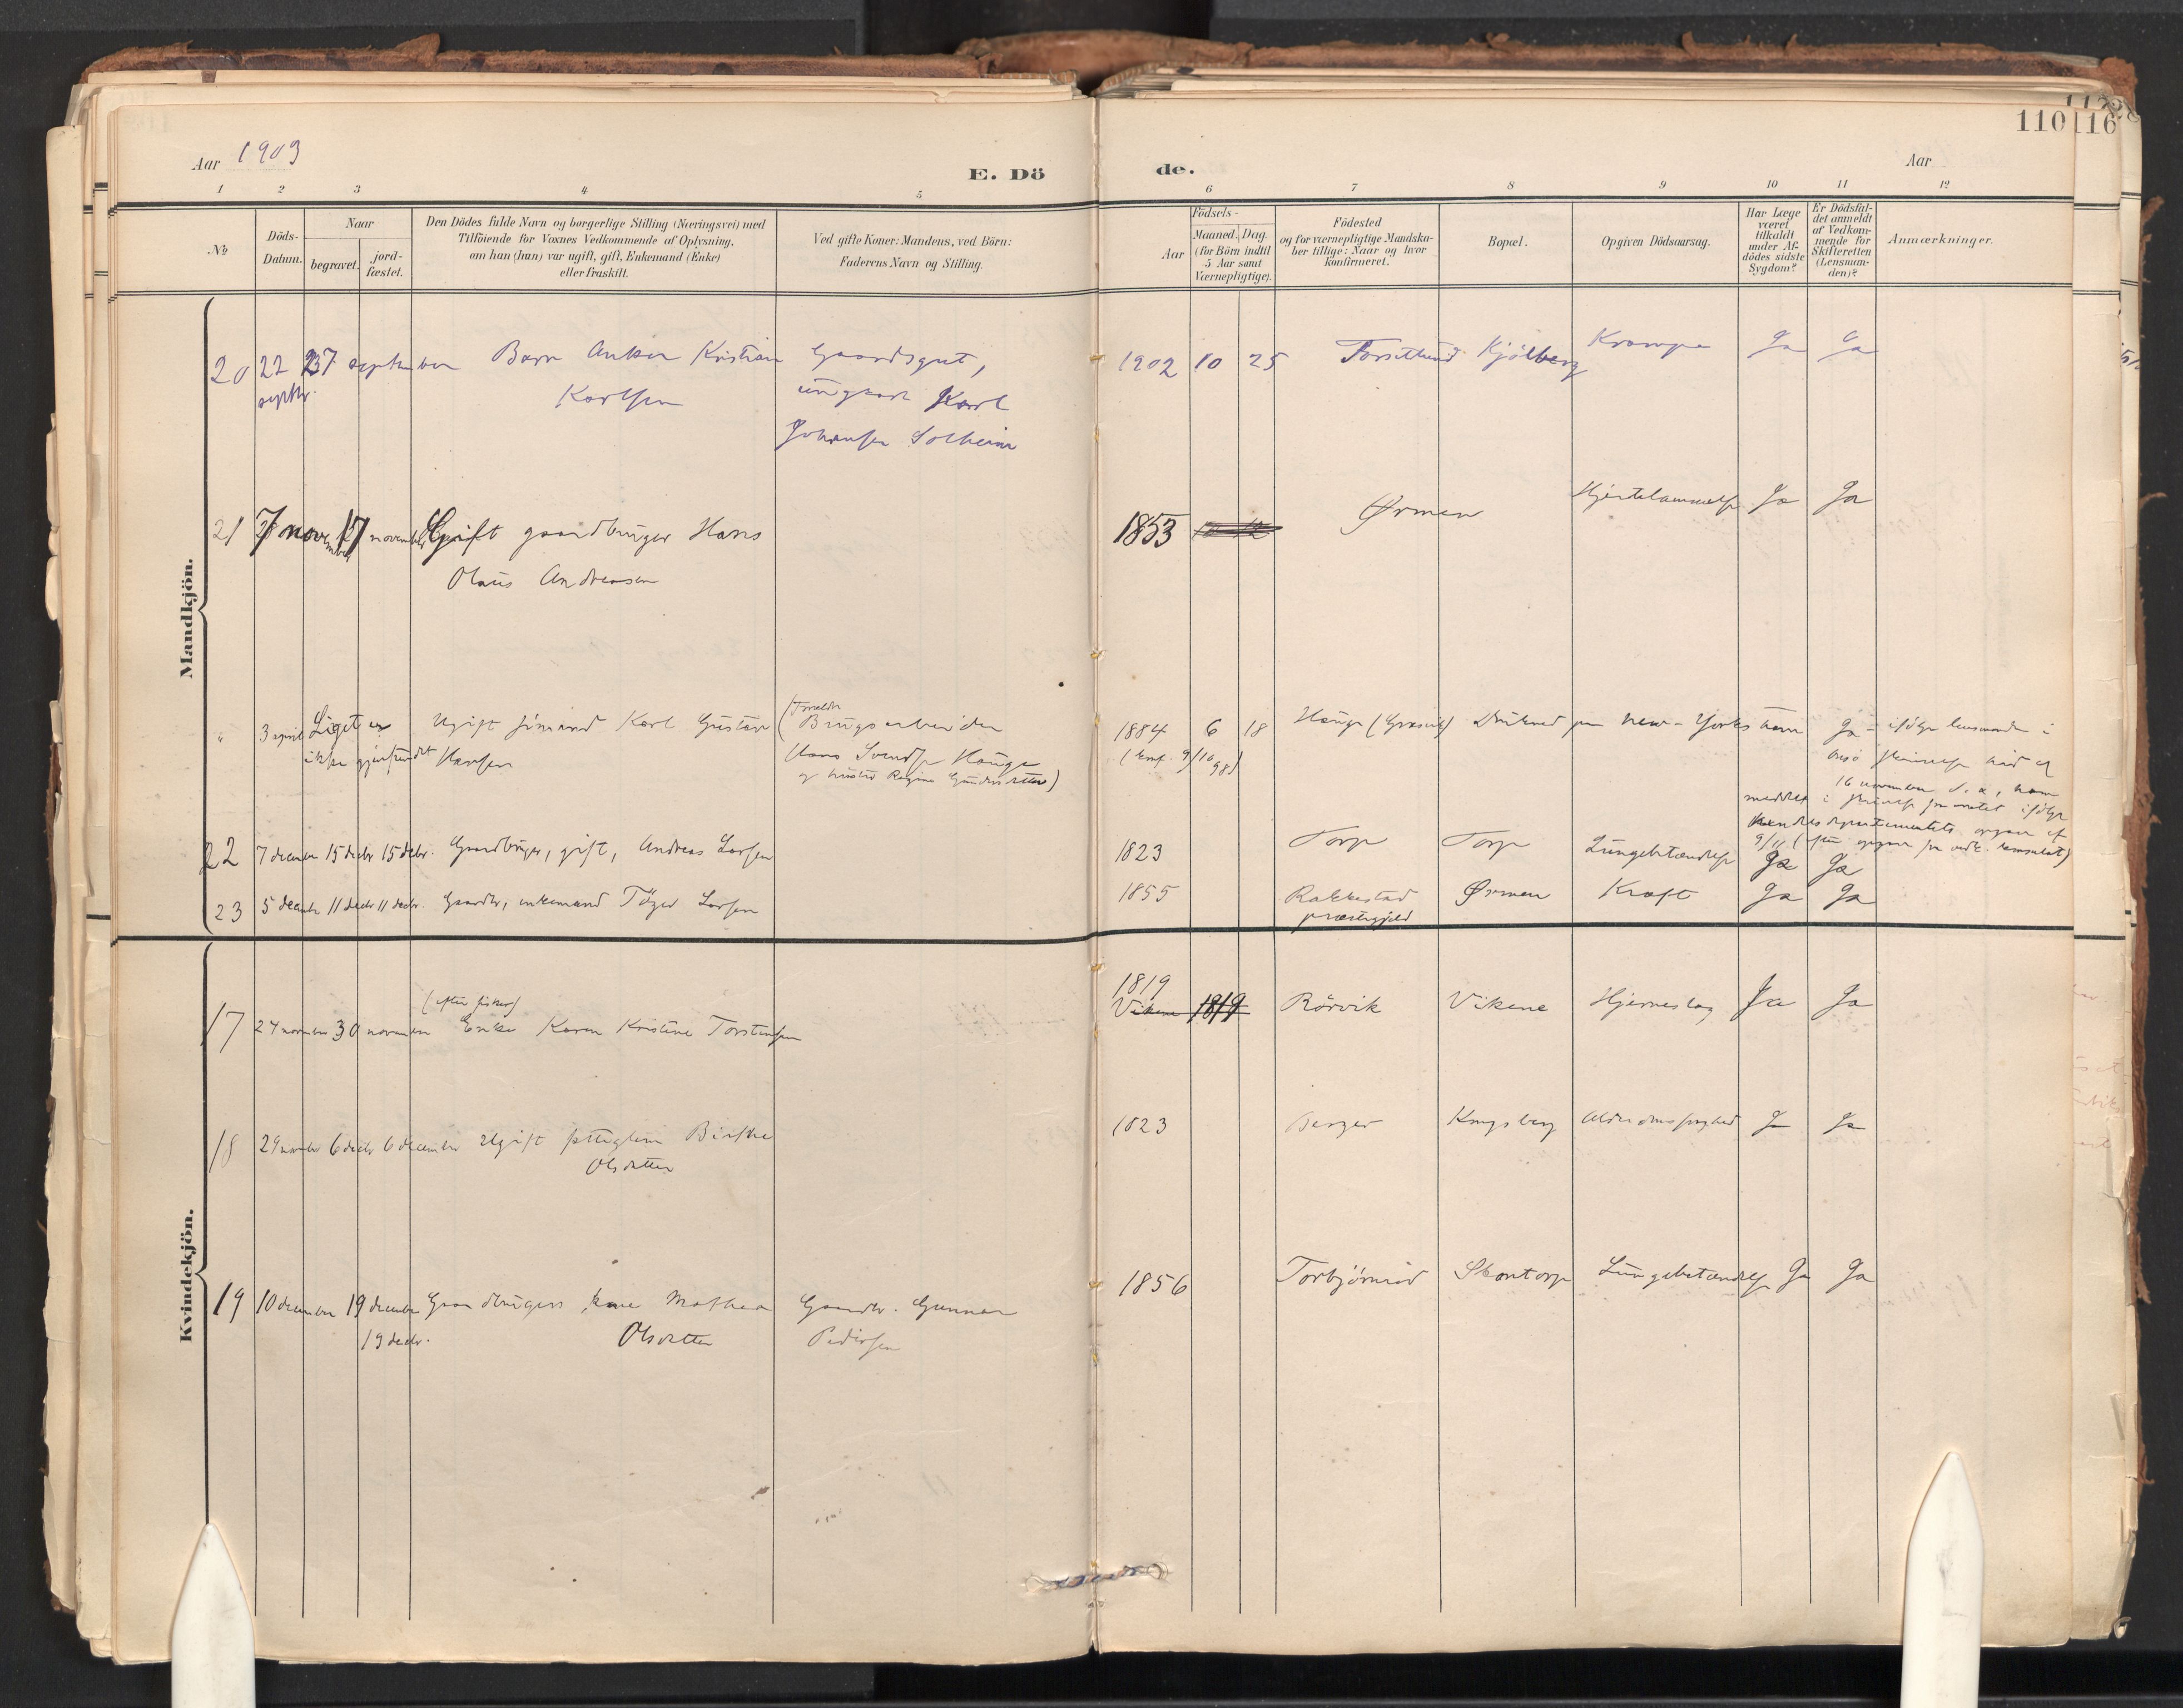 110 116
Aar 1903
E. Dö de.
Aar
1 2 3 4 5 6 7 8 9 10 11 12
No
Döds-
Datum.
Naar
begravet.
jord-
fæstet.
Den Dödes fulde Navn og borgerlige Stilling (Næringsvei) med
Tilföiende for Voxnes Vedkommende af Oplysning,
om han (hun) var ugift, gift, Enkemand (Enke)
eller fraskilt.
Ved gifte Koner: Mandens, ved Börn:
Faderens Navn og Stilling.
Födsels-
Aar
Maaned. Dag.
(for Börn indtil
5 Aar samt
Værnepligtige).
Födested
og for værnepligtige Mandska-
ber tillige: Naar og hvor
konfirmeret.
Bopæl.
Opgiven Dödsaarsag.
Har Læge
været
tilkaldt
under Af-
dödes sidste
Sygdom?
Er Dödsfal-
det anmeldt
af Vedkom-
mende for
Skifteretten
(Lensman-
den)?
Anmærkninger.
Mandkjön.
20 22 27 september Barn Anker Kristian Gaardsgut, 1902 10 25 Torsitlund Kjölberg Krampe Ja Ja
septbr. Karlsen ungkarl Karl
Johansen Solheim
21 7 november 17 november Gift gaardbruger Hans 1853 Ørmen Hjertelammelse Ja Ja
Olaus Andreasen
" 3 april Liget er Ugift sjömand Karl Gustav (Forældre Brugsarbeider 1884 6 18 Hauge Druknet paa New-Yorks havn Ja - ifölge lensmanden i
ikke gjenfundet Hansen Hans Svendsen Hauge (konf. 9/10 98) Onsö skrivelse hid af
og hustru Regine Gundersdatter) 16 november d. a., som
meddelt i skrivelse fra amtet ifölge
Handelsdepartementets opgave af
9/11 (efter opgave fra vedk. konsulat)
22 7 december 15 decbr 15 decbr. Gaardbruger, gift, Andreas Larsen 1823 Torp Torp Lungebetændelse Ja Ja
23 5 december 11 decbr 11 decbr. Gaardbr, enkemand Töger Larsen 1855 Rakkestad Ørmen Kræft Ja Ja
præstegjeld
Kvindekjön.
(efter fisker) 1819
17 24 november 30 november Enke Karen Kristine Torstensen Vikene 1819 Rörvik Vikene Hjerneslag Ja Ja
18 29 novembr 6 decbr 6 december Ugift fattiglem Birthe 1823 Berger Kongsberg Alderdomssvaghed Ja Ja
Olsdatter
19 10 december 19 december Gaardbrugers kone Mathea Gaardbr. Gunnar 1856 Torbjörnröd Skontorp Lungebetændelse Ja Ja
19 decbr. Olsdatter Pedersen